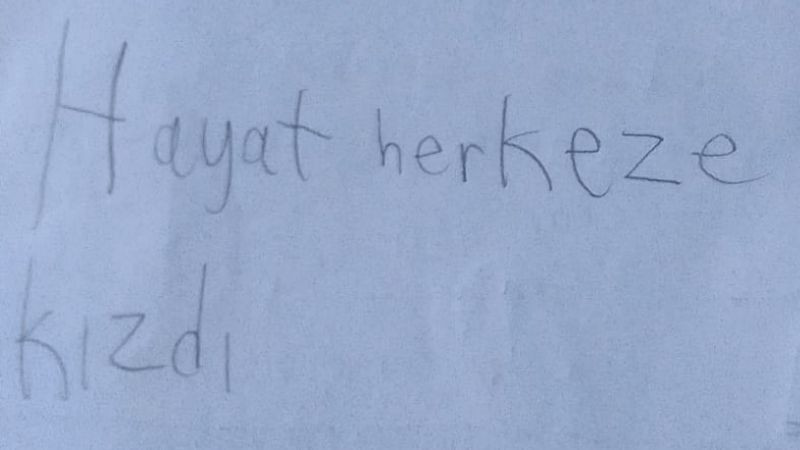 Hayat herkeze
kızdı